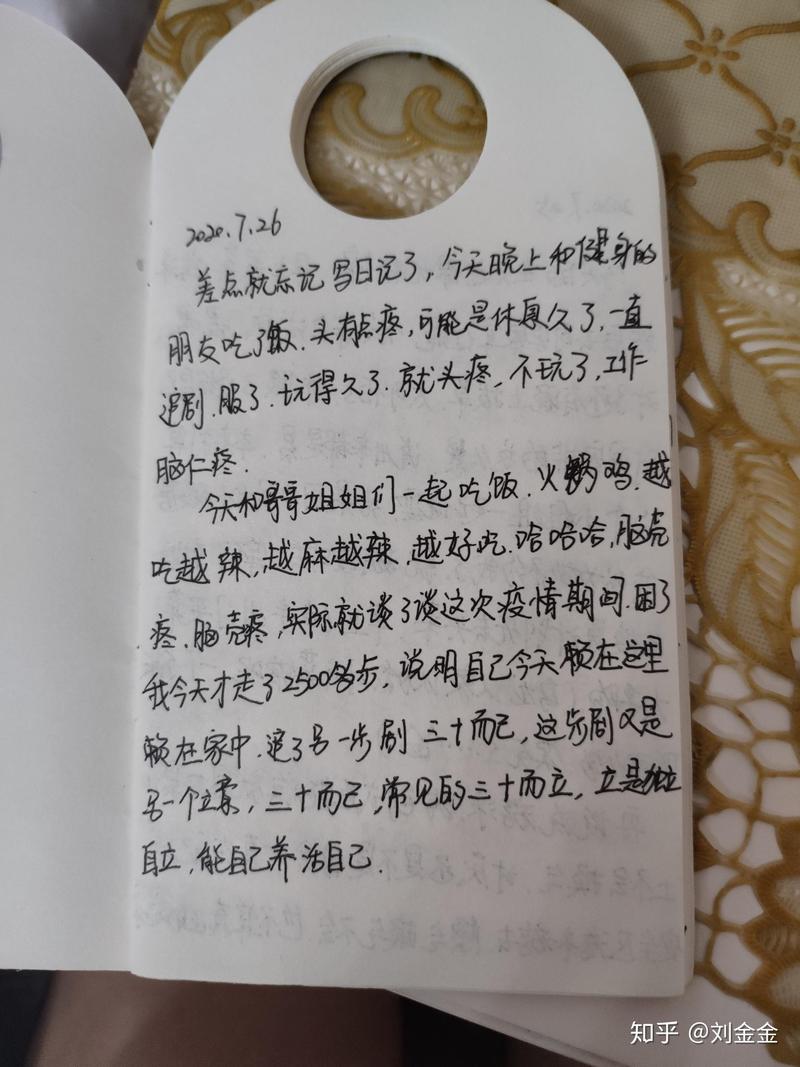 2020.7.26
差点就忘记写日记了,今天晚上和健身的
朋友吃了饭.头有点疼,可能是休息久了.一直
追剧.服了.玩得久了.就头疼,不玩了,工作
脑仁疼.
今天和哥哥姐姐们一起吃饭.火锅鸡.越
吃越辣,越麻越辣,越好吃.哈哈哈,脑壳
疼.脑壳疼,实际就谈了谈这次疫情期间.困了
我今天才走了2500多步,说明自己今天赖在这里
赖在家中.追了另一步剧 三十而已,这步剧又是
另一个立意,三十而已,常见的三十而立,立是独立
自立,能自己养活自己.
知乎 @刘金金